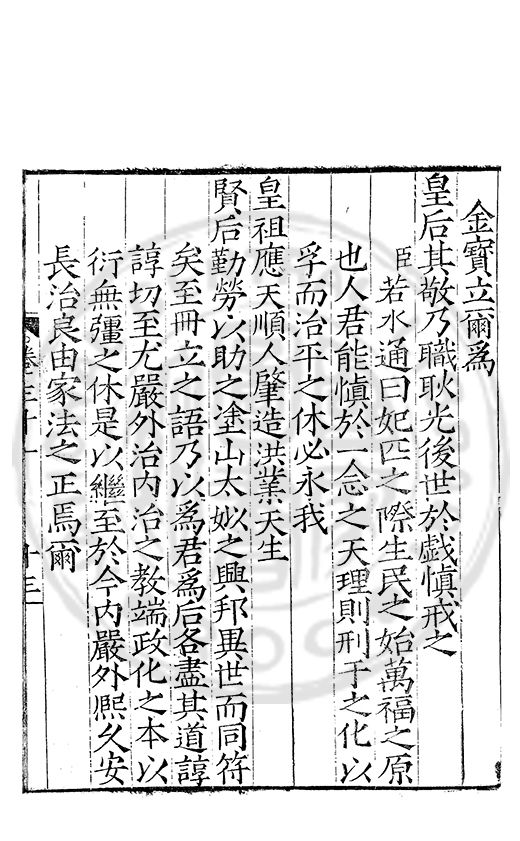 金寶立爾爲
皇后其敬乃職耿光後世於戲慎戒之
臣若水通曰妃匹之際生民之始萬福之原
也人君能慎於一念之天理則刑于之化以
孚而治平之休必永我
皇祖應天順人肇造洪業天生
賢后勤勞以助之塗山太姒之興邦異世而同符
矣至冊立之語乃以爲君爲后各盡其道諄
諄切至尤嚴外治内治之教端政化之本以
衍無彊之休是以繼至於今内嚴外熙久安
長治良由家法之正焉爾
卷三十一 十三